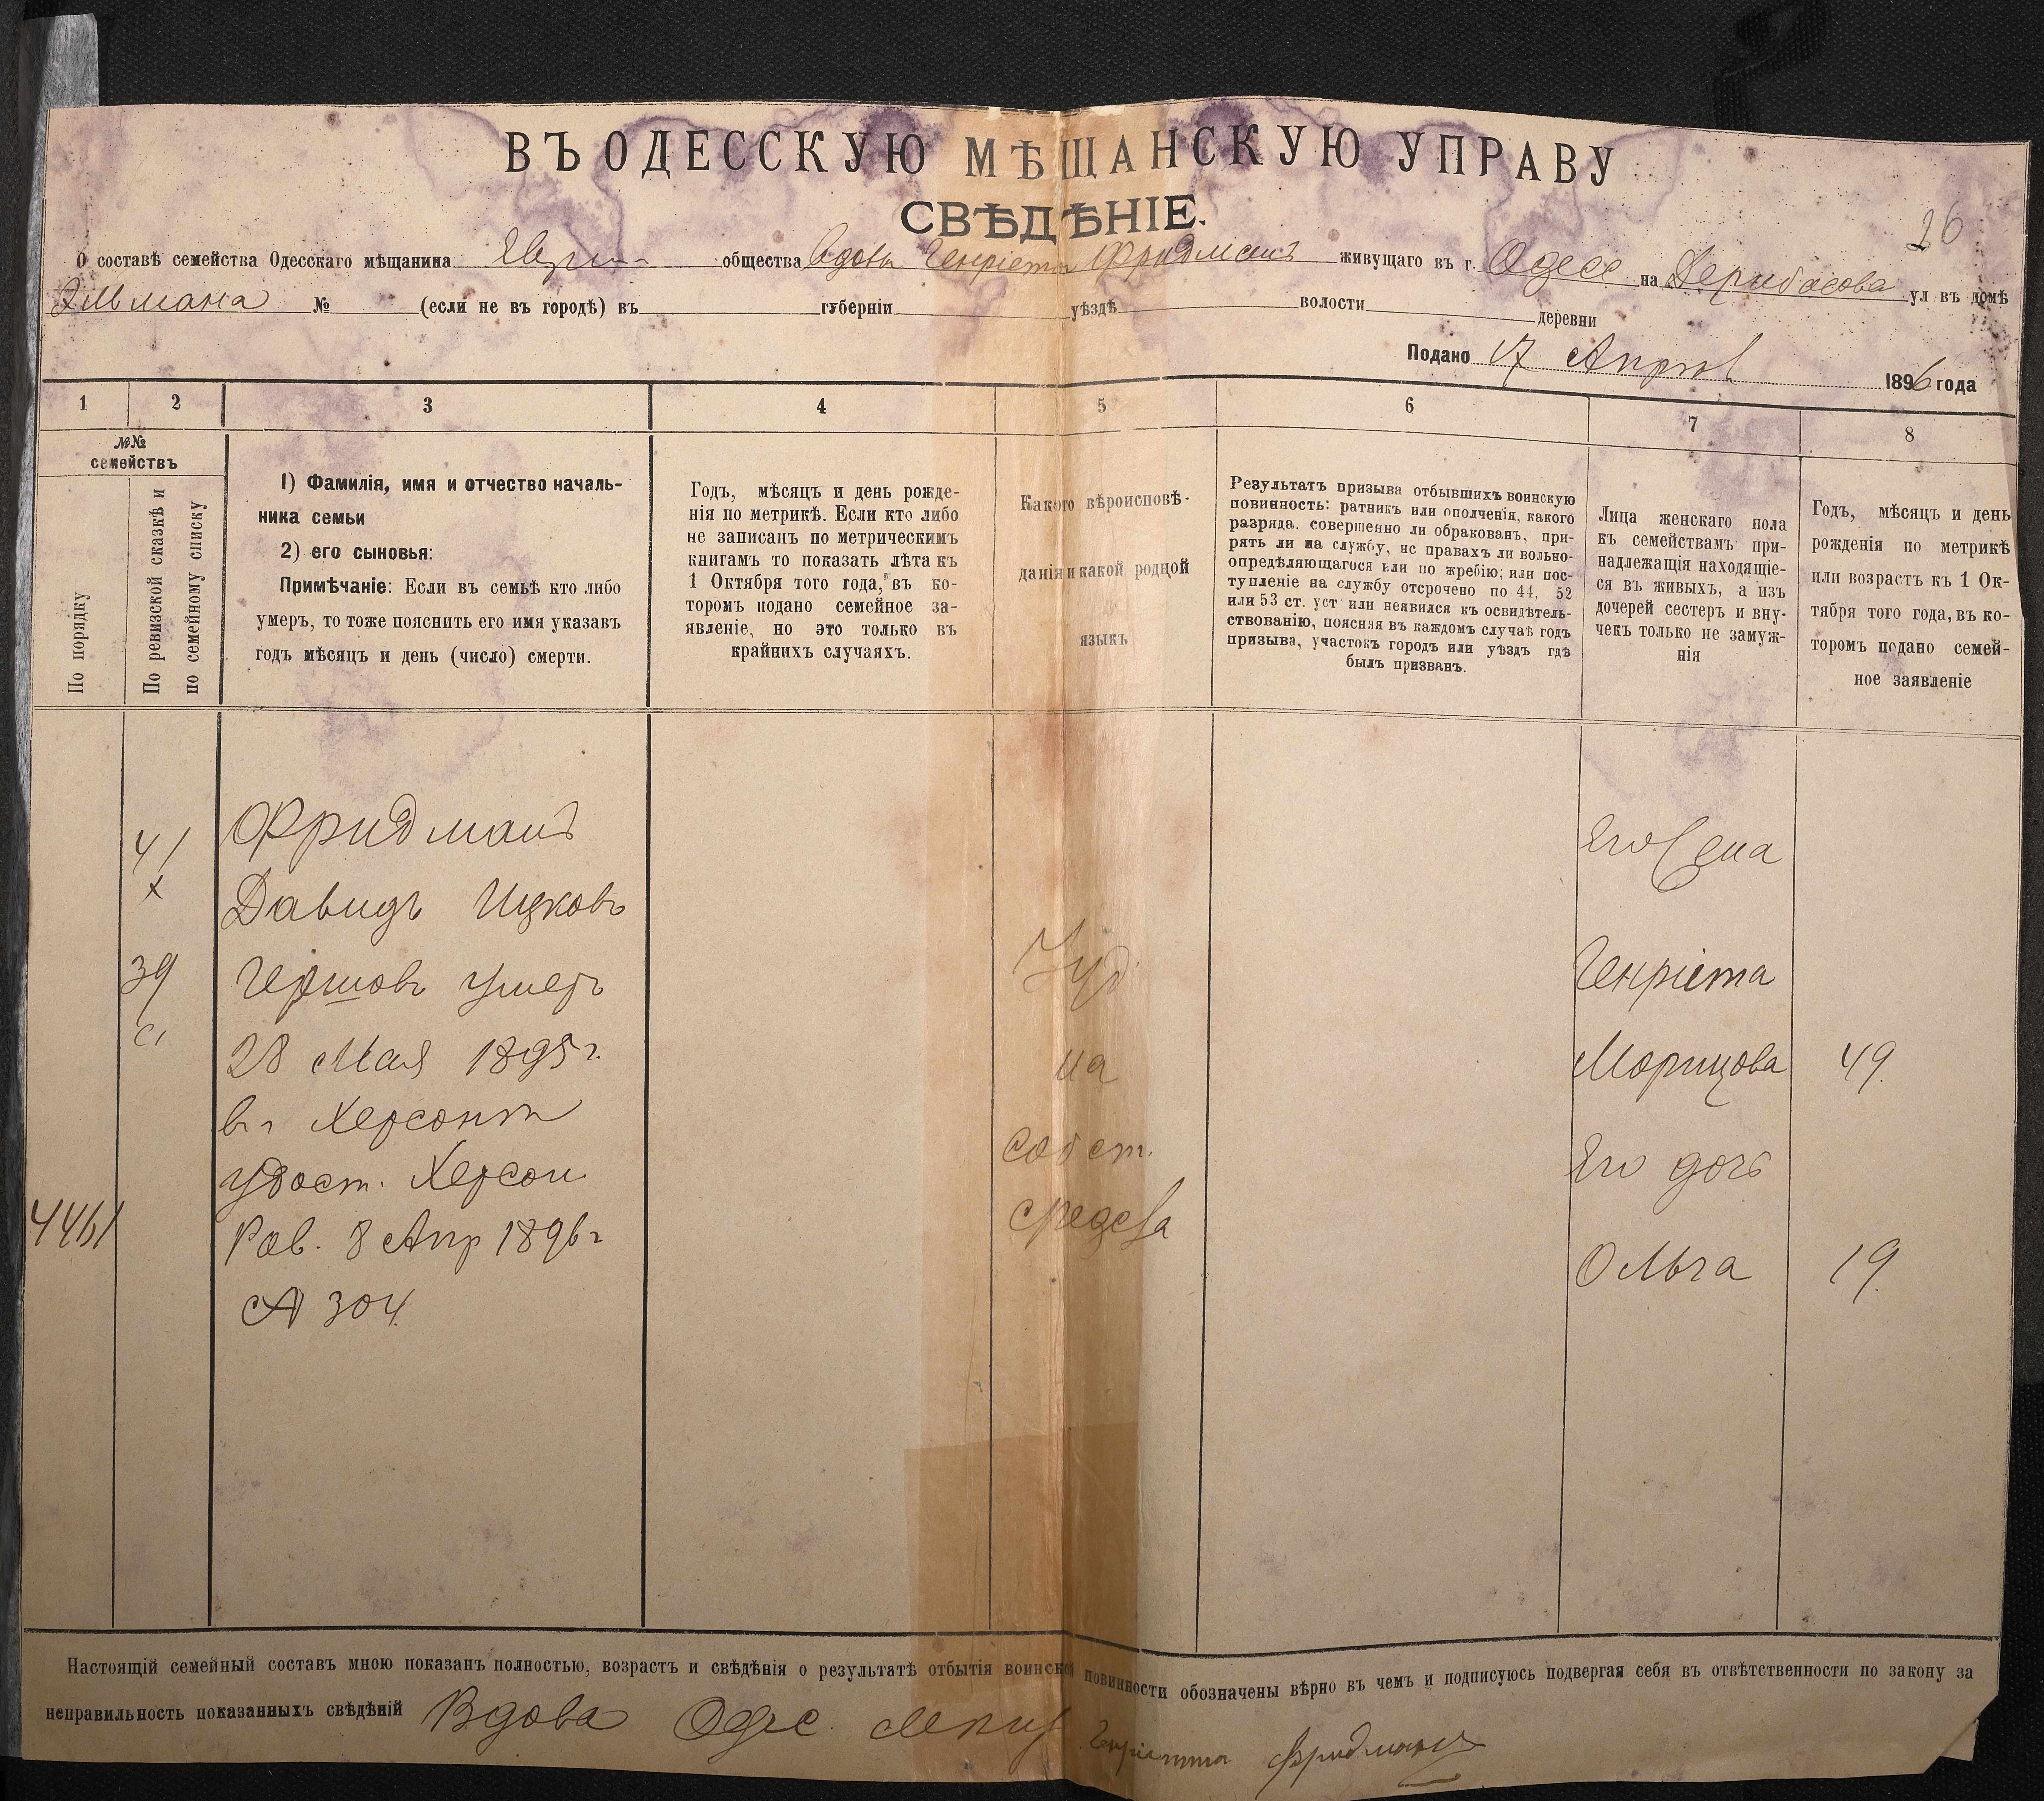 ВЪ ОДЕССКУЮ МѢЩАНСКУЮ УПРАВУ
СВѢДѢНІЕ.
26
О составѣ семейства Одесскаго мѣщанина общества Вдовы Генріета Фридманъ живущаго въ г. Одесс на Дерибасова ул въ домѣ
№ (если не въ городѣ) въ губерніи уѣздѣ волости деревни
Подано 17 Апрѣл 1896 года
1 2 3 4 5 6 7 8
№№ семействъ
По порядку
По ревизской сказкѣ и по семейному списку
1) Фамилія, имя и отчество началь-
ника семьи
2) его сыновья:
Примѣчаніе: Если въ семьѣ кто либо
умеръ, то тоже пояснить его имя указавъ
годъ мѣсяцъ и день (число) смерти.
Годъ, мѣсяцъ и день рожде-
нія по метрикѣ. Если кто либо
не записанъ по метрическимъ
книгамъ то показать лѣта къ
1 Октября того года, въ ко-
торомъ подано семейное за-
явленіе, но это только въ
крайнихъ случаяхъ.
Какого вѣроисповѣ-
данія и какой родной
языкъ
Результатъ призыва отбывшихъ воинскую
повинность: ратникъ или ополченія, какого
разряда. совершенно ли обракованъ, при-
рять ли на службу, нс правахъ ли вольно-
опредѣляющагося или по жребію; или пос-
тупленіе на службу отсрочено по 44, 52
или 53 ст. уст или неявился къ освидѣтель-
ствованію, поясняя въ каждомъ случаѣ годъ
призыва, участокъ городъ или уѣздъ гдѣ
былъ призванъ.
Лица женскаго пола
къ семействамъ при-
надлежащія находящіе-
ся въ живыхъ, а изъ
дочерей сестеръ и вну-
чекъ только не замуж-
нія
Годъ, мѣсяцъ и день
рожденія по метрикѣ
или возрастъ къ 1 Ок-
тября того года, въ ко-
торомъ подано семей-
ное заявленіе
41
39
4461
Фридманъ
Давидъ Ицковъ
Гершовъ умеръ
28 Мая 1895 г.
в г Херсонѣ
удост. Херсон
Рав. 8 Апр 1896 г
№ 304.
Іуд
на
собст.
средства
Его жена
Генріета
Морицова 49.
Его дочь
Ольга 19.
Настоящій семейный составъ мною показанъ полностью, возрастъ и свѣдѣнія о результатѣ отбытія воинской повинности обозначены вѣрно въ чемъ и подписуюсь подвергая себя въ отвѣтственности по закону за
неправильность показанныхъ свѣдѣній Вдова Одес. Генріетта Фридманъ